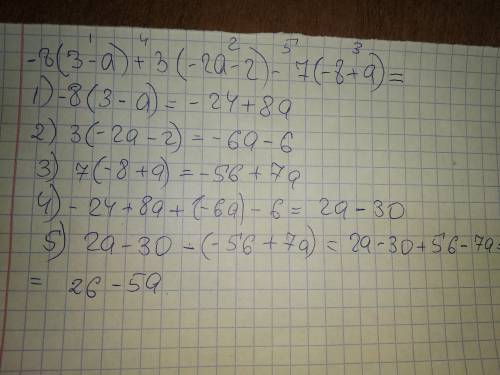 1 4 2 5 3
-8(3-a)+3(-2a-2)-7(-8+a)=
1) -8(3-a)=-24+8a
2) 3(-2a-2)=-6a-6
3) 7(-8+a)=-56+7a
4) -24+8a+(-6a)-6=2a-30
5) 2a-30-(-56+7a)=2a-30+56-7a=
= 26-5a